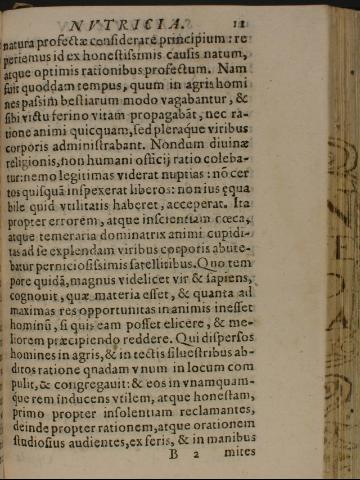 NVTRICIA. 12
natura profectæ considerare principium: re
periemus id ex honestissimis causis natum,
atque optimis rationibus profectum. Nam
fuit quoddam tempus, quum in agris homi
nes passim bestiarum modo vagabantur, &
sibi victu ferino vitam propagabãt, nec ra-
tione animi quicquam, sed pleraque viribus
corporis administrabant. Nondum diuinæ
religionis, non humani officij ratio coleba-
tur: nemo legitimas viderat nuptias: nõ cer
tos quisquã inspexerat liberos: non ius ęqua
bile quid vtilitatis haberet, acceperat. Ita
propter errorem, atque inscientiam cœca,
atque temeraria dominatrix animi cupidi-
tas ad se explendam viribus corporis abute-
batur perniciosissimis satellitibus. Quo tem
pore quidã, magnus videlicet vir & sapiens,
cognouit, quæ materia esset, & quanta ad
maximas res opportunitas in animis inesset
hominũ, si quis eam posset elicere, & me-
liorem præcipiendo reddere. Qui dispersos
homines in agris, & in tectis siluestribus ab-
ditos ratione qnadam vnum in locum com
pulit, & congregauit: & eos in vnamquam-
que rem inducens vtilem, atque honestam,
primo propter insolentiam reclamantes,
deinde propter rationem, atque orationem
studiosius audientes, ex feris, & in manibus
B 2 mites